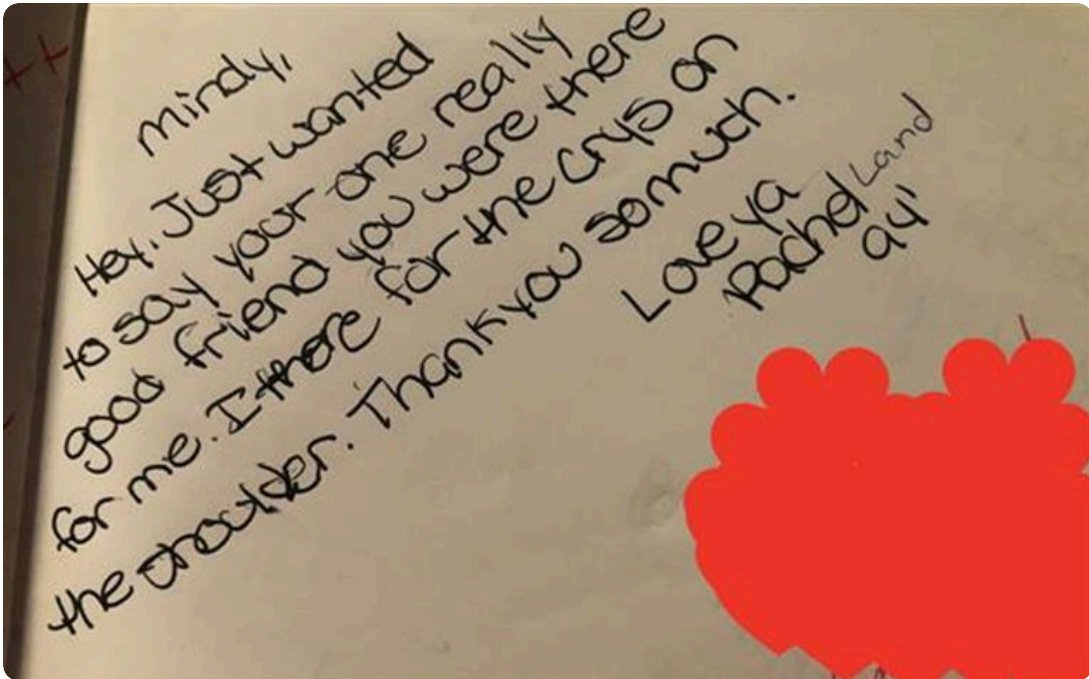 Mindy,
Hey, Just wanted
to say your one really
good friend you were there
for me. I there for the crys on
the shoulder. Thankyou somuch.
Love ya
Rachel Land
94'